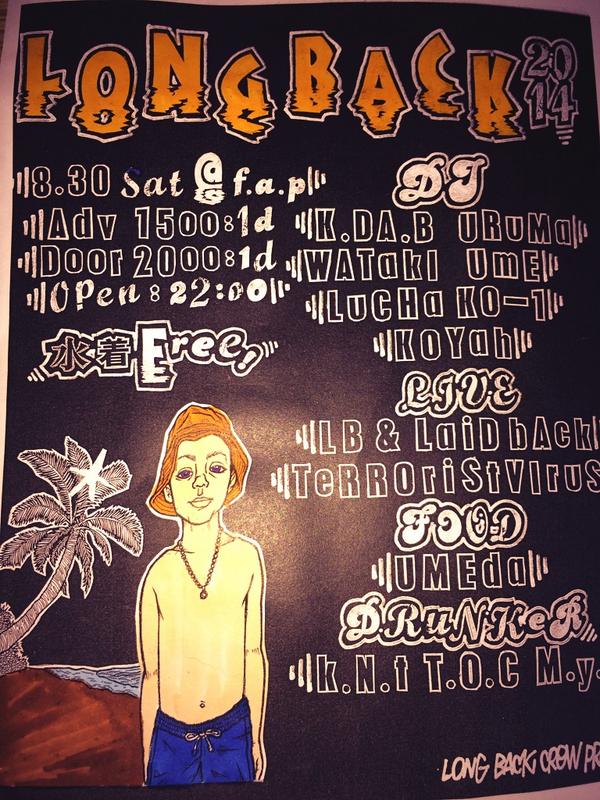 LONG BACK 2014
8.30 Sat @ f.a.p
Adv 1500:1d
Door 2000:1d
OPen:22:00
水着Free!
DJ
K.DA.B URuMa
WATaKI UmE
LuCHa KO-1
KOYah
LIVE
LB & LaiD bAck
TeRROriStVIruS
FOOD
UMEda
DRuNKeR
k.N.t T.O.C M.y.
LONG BACK CREW PR